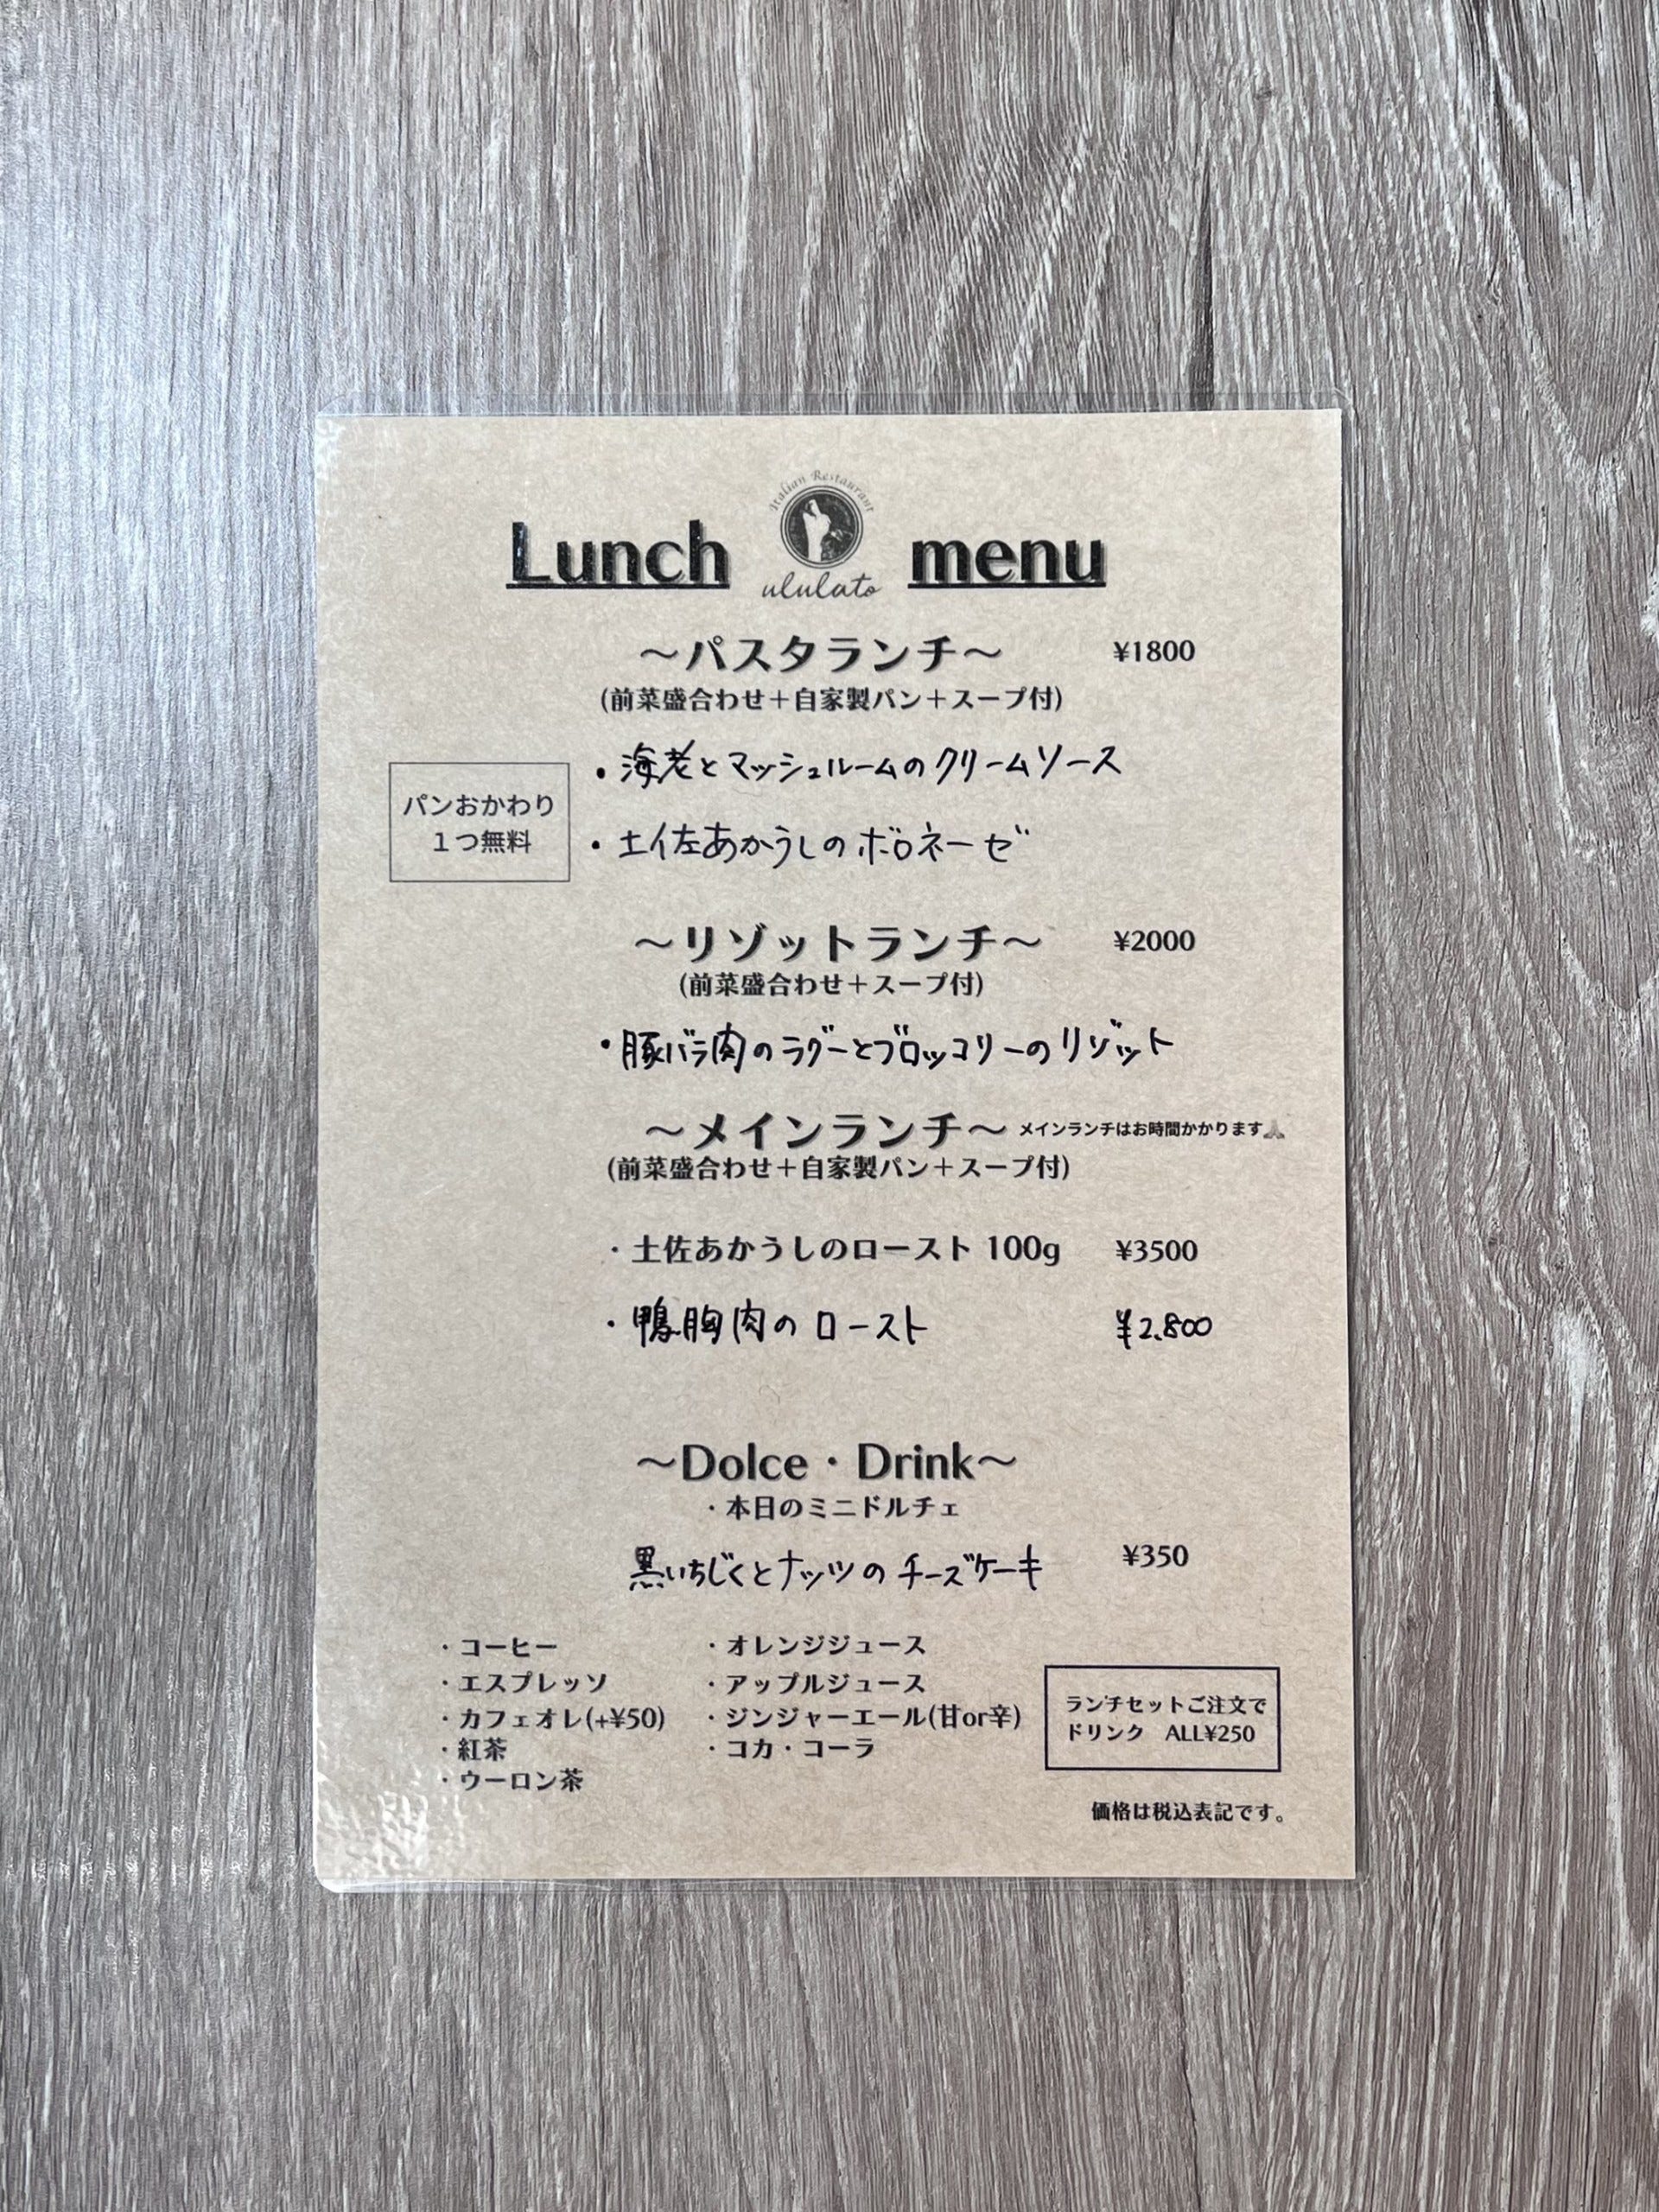 Italian Restaurant
Lunch menu
ululato
～パスタランチ～ ¥1800
(前菜盛合わせ＋自家製パン＋スープ付)
・海老とマッシュルームのクリームソース
パンおかわり
１つ無料
・土佐あかうしのボロネーゼ
～リゾットランチ～ ¥2000
(前菜盛合わせ＋スープ付)
・豚バラ肉のラグーとブロッコリーのリゾット
～メインランチ～ メインランチはお時間かかります🙏
(前菜盛合わせ＋自家製パン＋スープ付)
・土佐あかうしのロースト 100g ¥3500
・鴨胸肉のロースト ¥2.800
～Dolce・Drink～
・本日のミニドルチェ
黒いちじくとナッツのチーズケーキ ¥350
・コーヒー
・エスプレッソ
・カフェオレ(+¥50)
・紅茶
・ウーロン茶
・オレンジジュース
・アップルジュース
・ジンジャーエール(甘or辛)
・コカ・コーラ
ランチセットご注文で
ドリンク ALL¥250
価格は税込表記です。